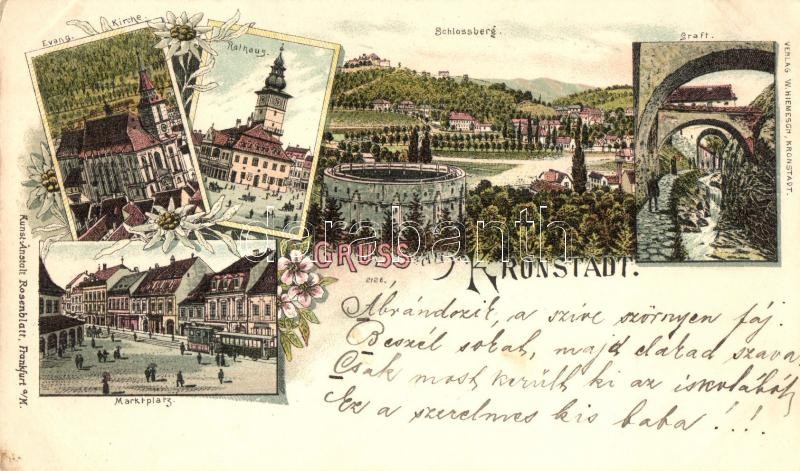 Evang. Kirche.
Rathaus.
Schlossberg.
Graft.
VERLAG W. HIEMESCH, KRONSTADT.
darabanth
GRUSS AUS KRONSTADT.
2126.
Kunst-Anstalt Rosenblatt, Frankfurt a/M.
Marktplatz.
Ábrándozik, a szíve szörnyen fáj.
Beszél sokat, majd elakad szava
Csak most került ki az iskolából
Ez a szerelmes kis baba!!!